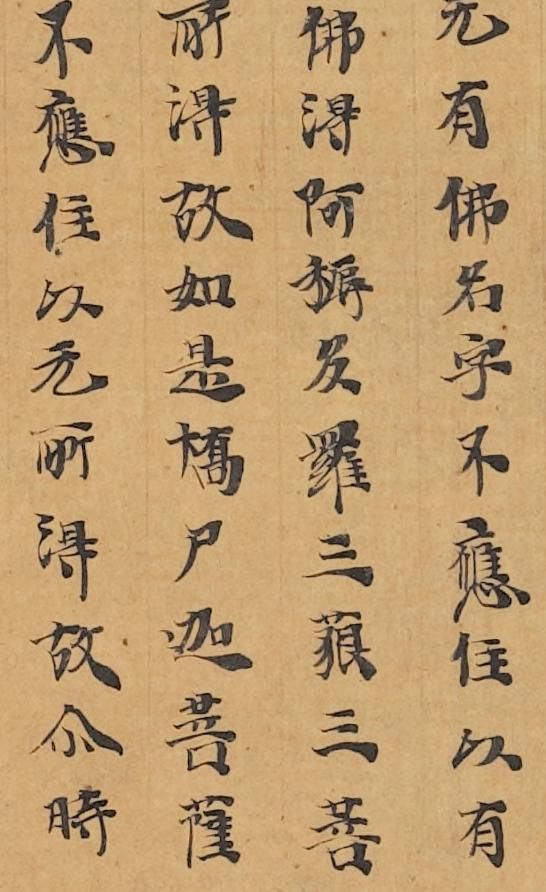 无有佛名字不應住以有
佛得阿耨多羅三藐三菩
所得故如是憍尸迦菩薩
不應住以无所得故尒時